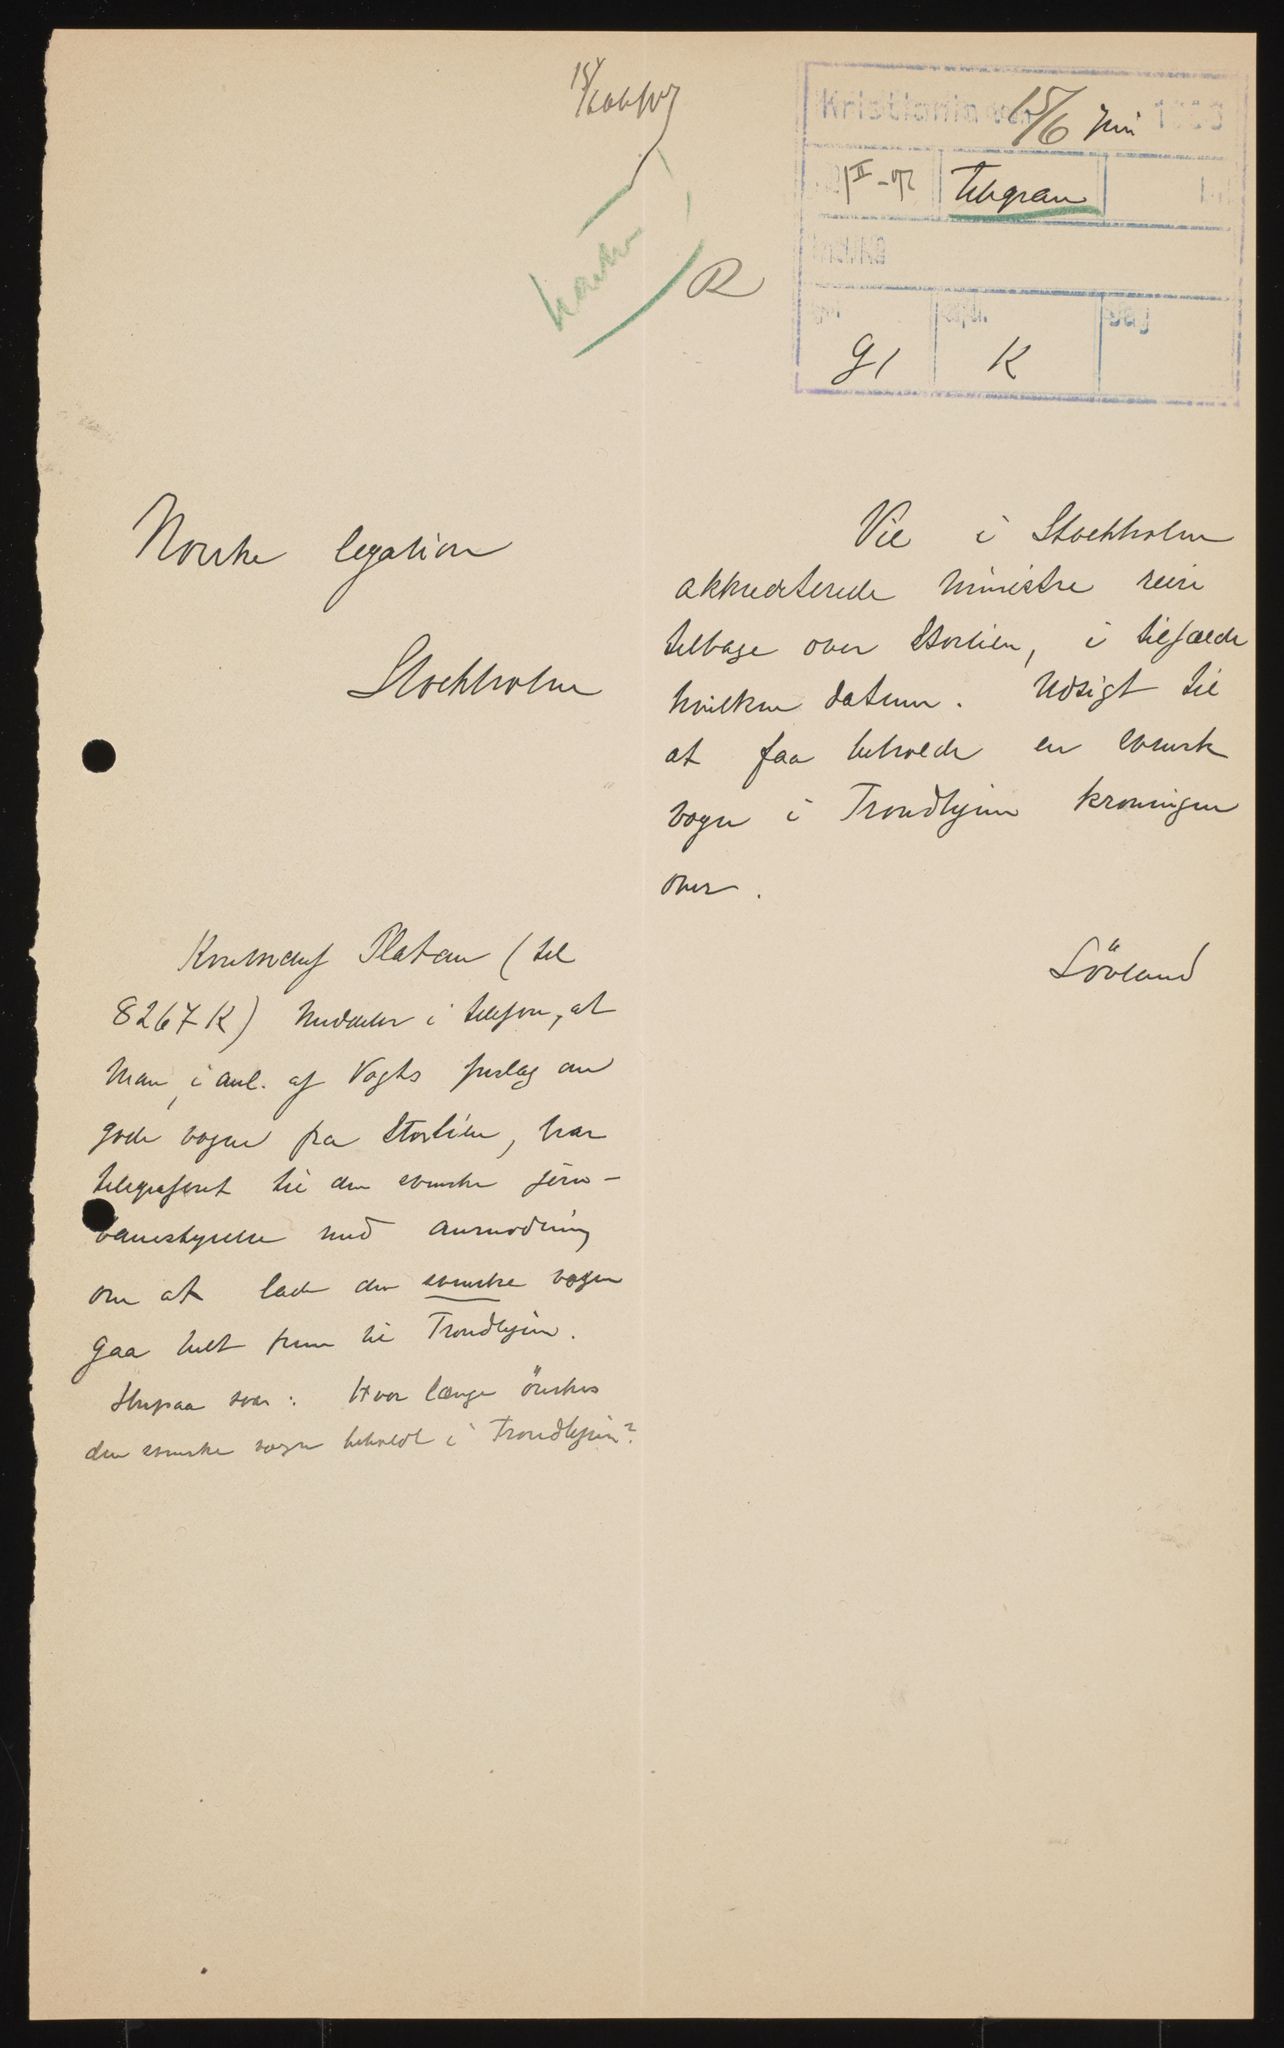 Kristiania den 15/6 juni 1906
telegram
haster
R
g1
K
Norske legation
Stockholm
Vil i Stockholm
akkrediterede ministre reise
tilbage over Storlien, i tilfælde
hvilken datum. Udsigt til
at faa beholde en svensk
vogn i Trondhjem kroningen
over.
Lövland
Platou (tel
8267 K) meddeler i telefon, at
man, i anl. af Vogts forslag om
gode vogne fra Storlien, har
telegraferet til den svenske jern-
banestyrelse med anmodning
om at lade den svenske vogn
gaa helt frem til Trondhjem.
svar: Hvor længe önskes
den svenske vogn beholdt i Trondhjem?